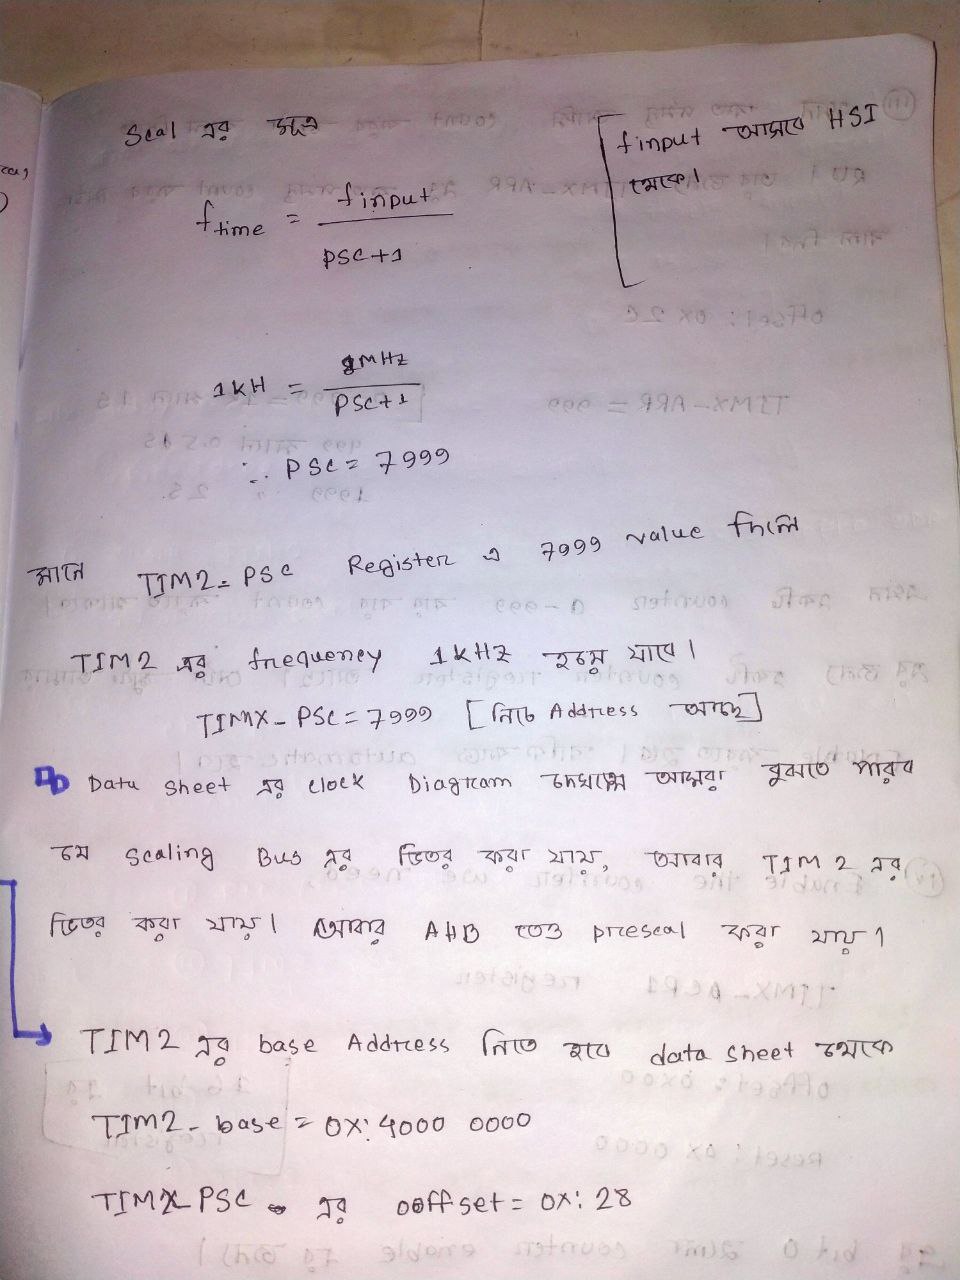 Scal এর সূত্র
finput আসবে HSI
থেকে।
f time = finput
PSC+1
1KH = 8MHz
PSC+1
∴ PSC = 7999
মানে TIM2_PSC Register এ 7999 value দিলে
TIM2 এর frequency 1KHZ হয়ে যাবে।
TIMX_PSC = 7999 [নিচে Address আছে]
Data sheet এর clock Diagram দেখলে আমরা বুঝতে পারব
যে Scaling Bus এর ভিতর করা যায়, আবার TIM2 এর
ভিতর করা যায়। আবার AHB তেও prescal করা যায়।
TIM2 এর base Address নিতে হবে data sheet থেকে
TIM2_base = 0X:4000 0000
TIMX PSC এর ooffset = 0X:28